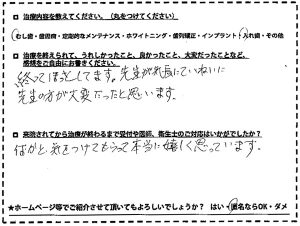 □ 治療内容を教えてください。(丸をつけてください)
むし歯・歯周病・定期的なメンテナンス・ホワイトニング・歯列矯正・インプラント・入れ歯・その他
□ 治療を終えられて、うれしかったこと、良かったこと、大変だったことなど、
感想をご自由にお書きください。
終ってほっとしてます。先生が気長にていねいに
先生の方が大変だったと思います。
□ 来院されてから治療が終わるまで受付や医師、衛生士のご対応はいかがでしたか?
なにかと気をつけてもらって本当に嬉しく思っています。
★ホームページ等でご紹介させて頂いてもよろしいでしょうか? はい・匿名ならOK・ダメ